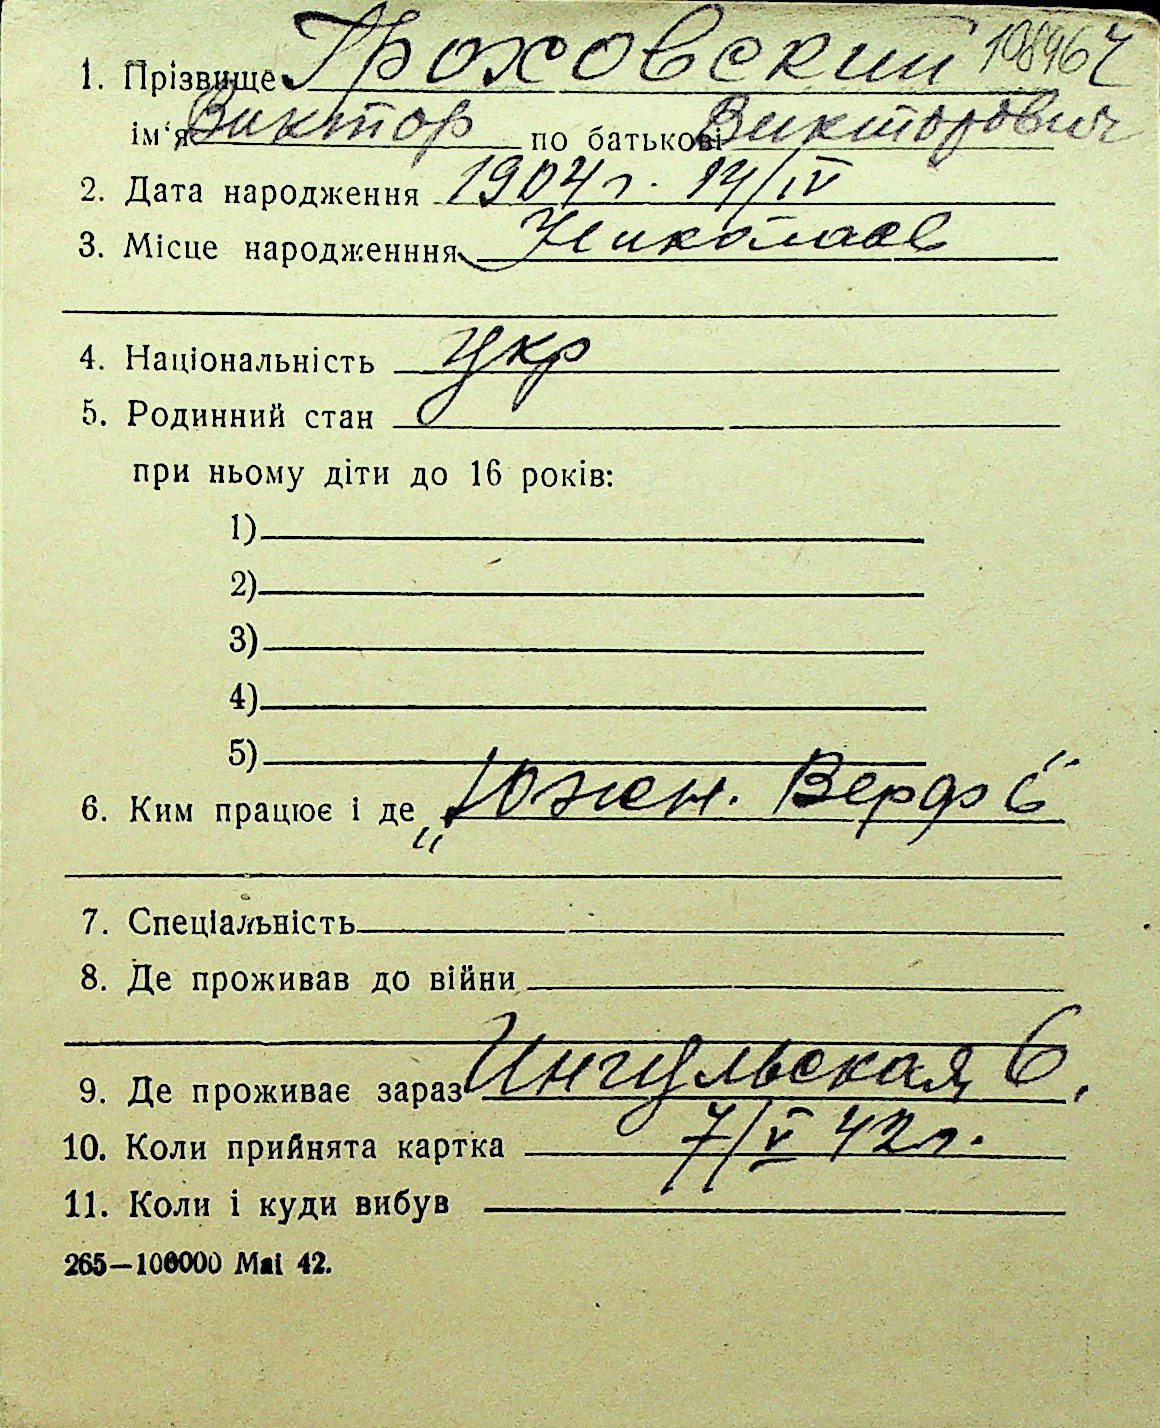 1. Прізвище Гроховский 108964
ім'я Виктор по батькові Викторович
2. Дата народження 1904 г. 14/IV
3. Місце народженння Николаев
4. Національність укр
5. Родинний стан
при ньому діти до 16 років:
1)
2)
3)
4)
5)
6. Ким працює і де „Южн. Верфь“
7. Спеціальність
8. Де проживав до війни
9. Де проживає зараз Ингульская 6.
10. Коли прийнята картка 7/V 42 г.
11. Коли і куди вибув
265—100000 Mai 42.